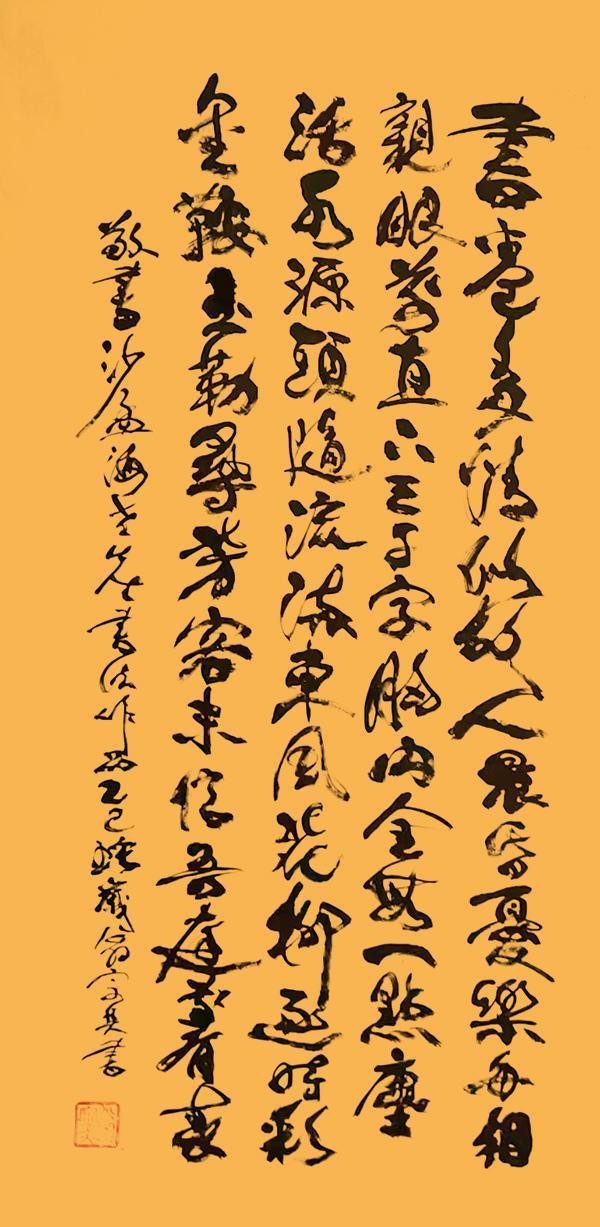 書卷多情似故人晨昏憂樂每相
親眼前直下三千字胸內全無一點塵
活水源頭隨流滿東風花柳逐時新
金鞍玉勒尋芳客未信吾廬別有春
敬書沙孟海老先生書法作品乙巳藏翁書